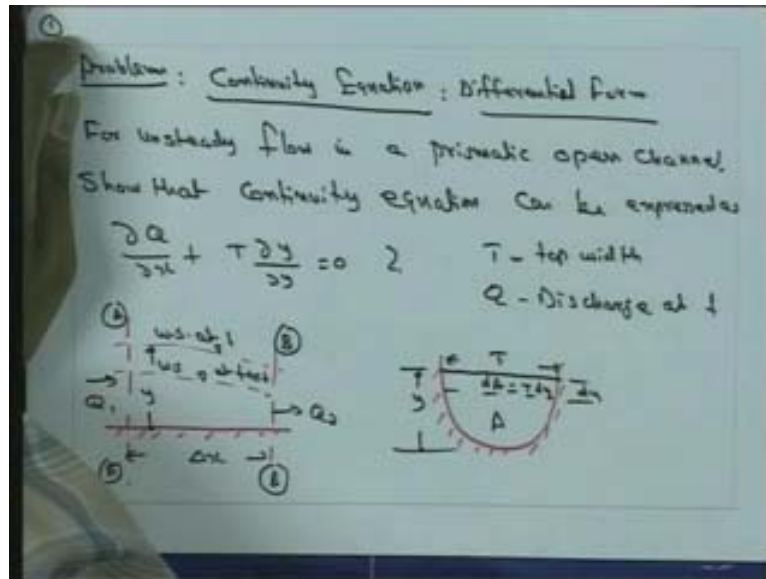 ①
Problem : Continuity Equation : Differential Form
For unsteady flow in a prismatic open channel.
Show that Continuity equation can be expressed as
∂Q/∂x + T ∂y/∂y = 0
T - top width
Q - Discharge at t
w.s. at t
w.s. at t+Δt
Q₁
y
Q₂
Δx
T
dA = T dy
dy
y
A